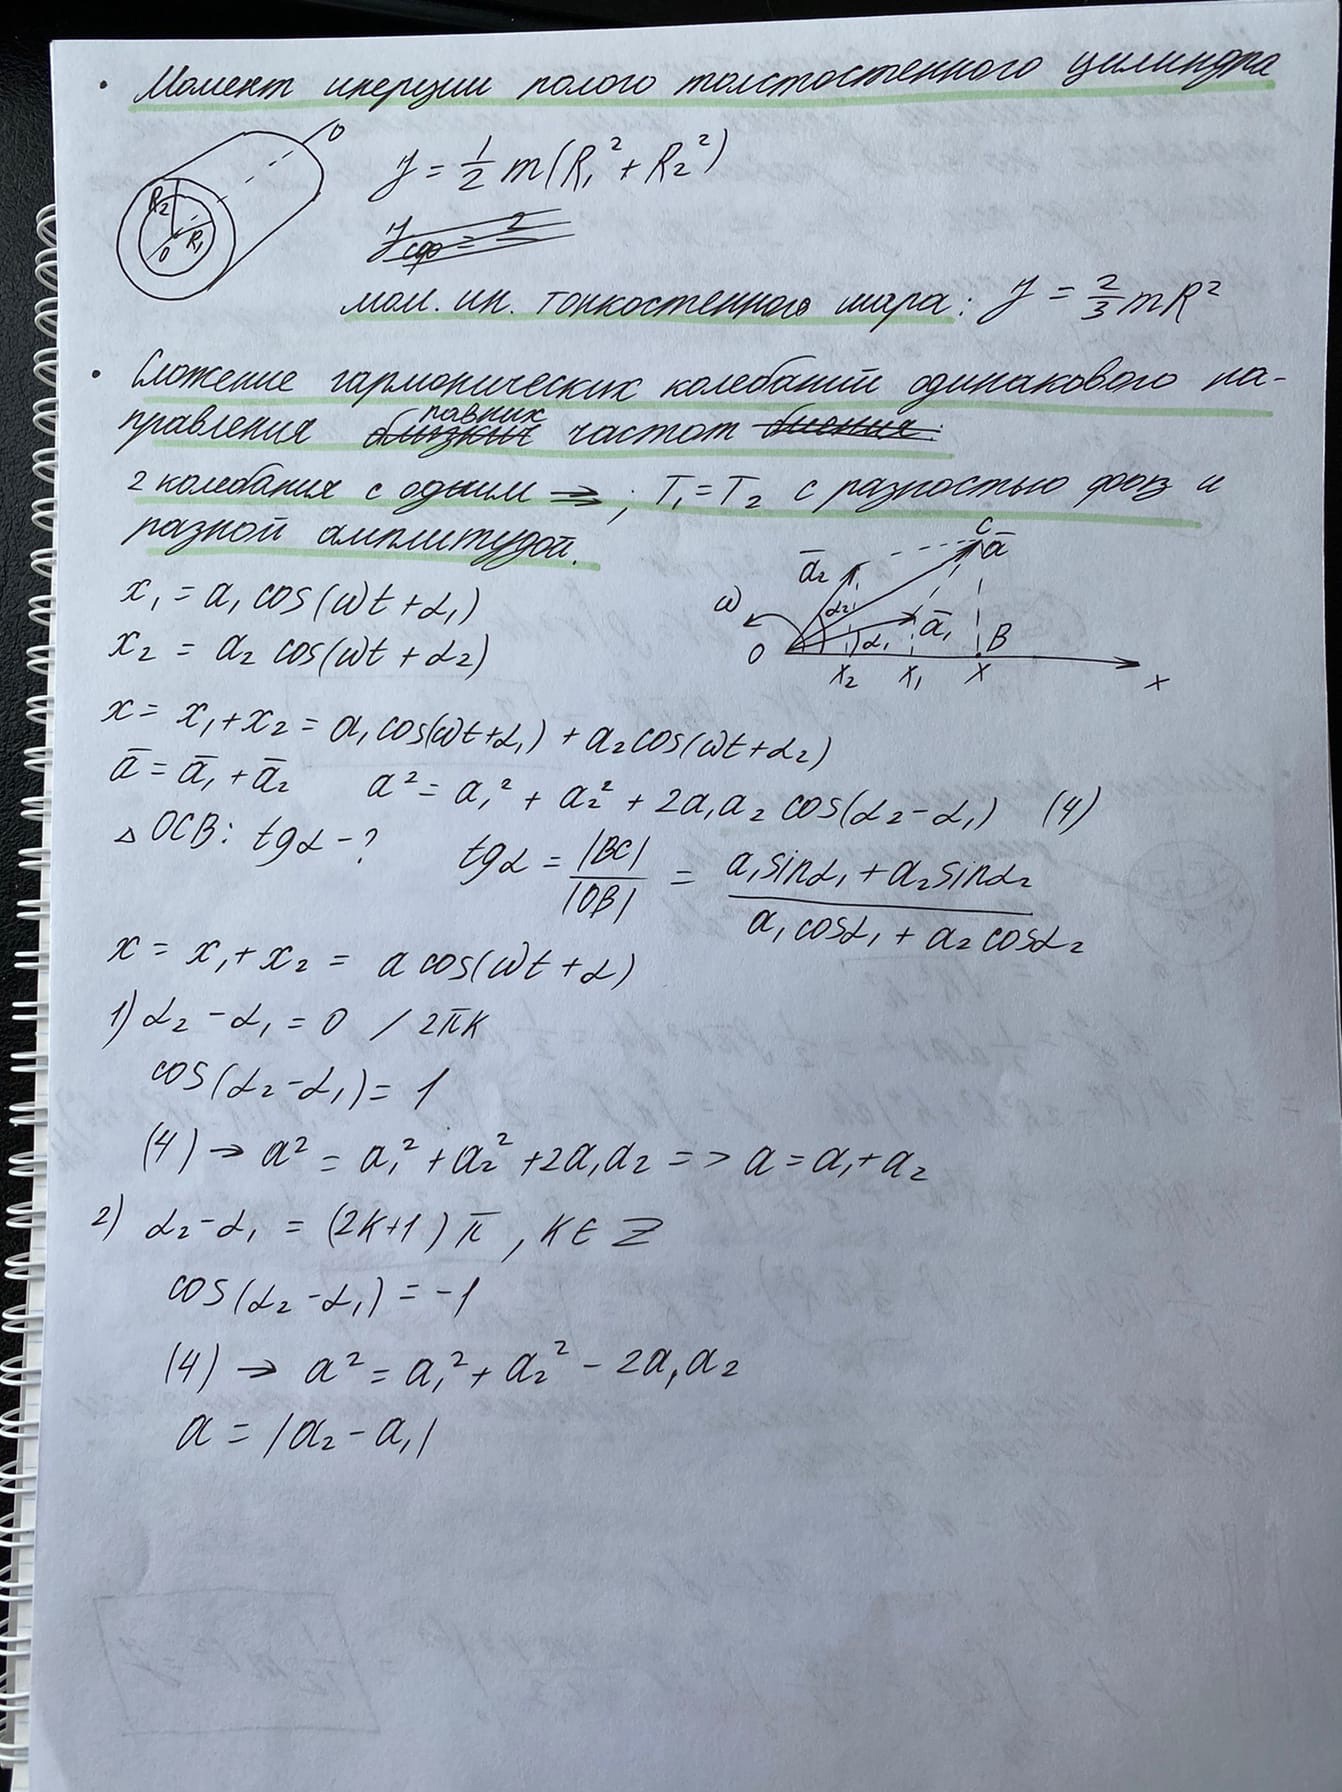 · Момент инерции полого толстостенного цилиндра
O
R₂
R₁
O
J = 1/2 m(R₁² + R₂²)
J сф = 2
мом. ин. тонкостенного шара: J = 2/3 mR²
· Сложение гармонических колебаний одинакового на-
равних
правления близких частот биения:
2 колебания с одним →; T₁ = T₂ с разностью фаз и
разной амплитудой.
x₁ = a₁ cos(ωt + α₁)
x₂ = a₂ cos(ωt + α₂)
C
ā
ā₂
ω
α₂
ā₁
α₁
B
O
x₂ x₁ x
x
x = x₁ + x₂ = a₁ cos(ωt + α₁) + a₂ cos(ωt + α₂)
ā = ā₁ + ā₂ a² = a₁² + a₂² + 2a₁a₂ cos(α₂ - α₁) (4)
△ OCB: tgα - ? tgα = |BC| / |OB| = (a₁ sinα₁ + a₂ sinα₂) / (a₁ cosα₁ + a₂ cosα₂)
x = x₁ + x₂ = a cos(ωt + α)
1) α₂ - α₁ = 0 / 2πk
cos(α₂ - α₁) = 1
(4) → a² = a₁² + a₂² + 2a₁a₂ => a = a₁ + a₂
2) α₂ - α₁ = (2k+1)π, k ∈ Z
cos(α₂ - α₁) = -1
(4) → a² = a₁² + a₂² - 2a₁a₂
a = |a₂ - a₁|